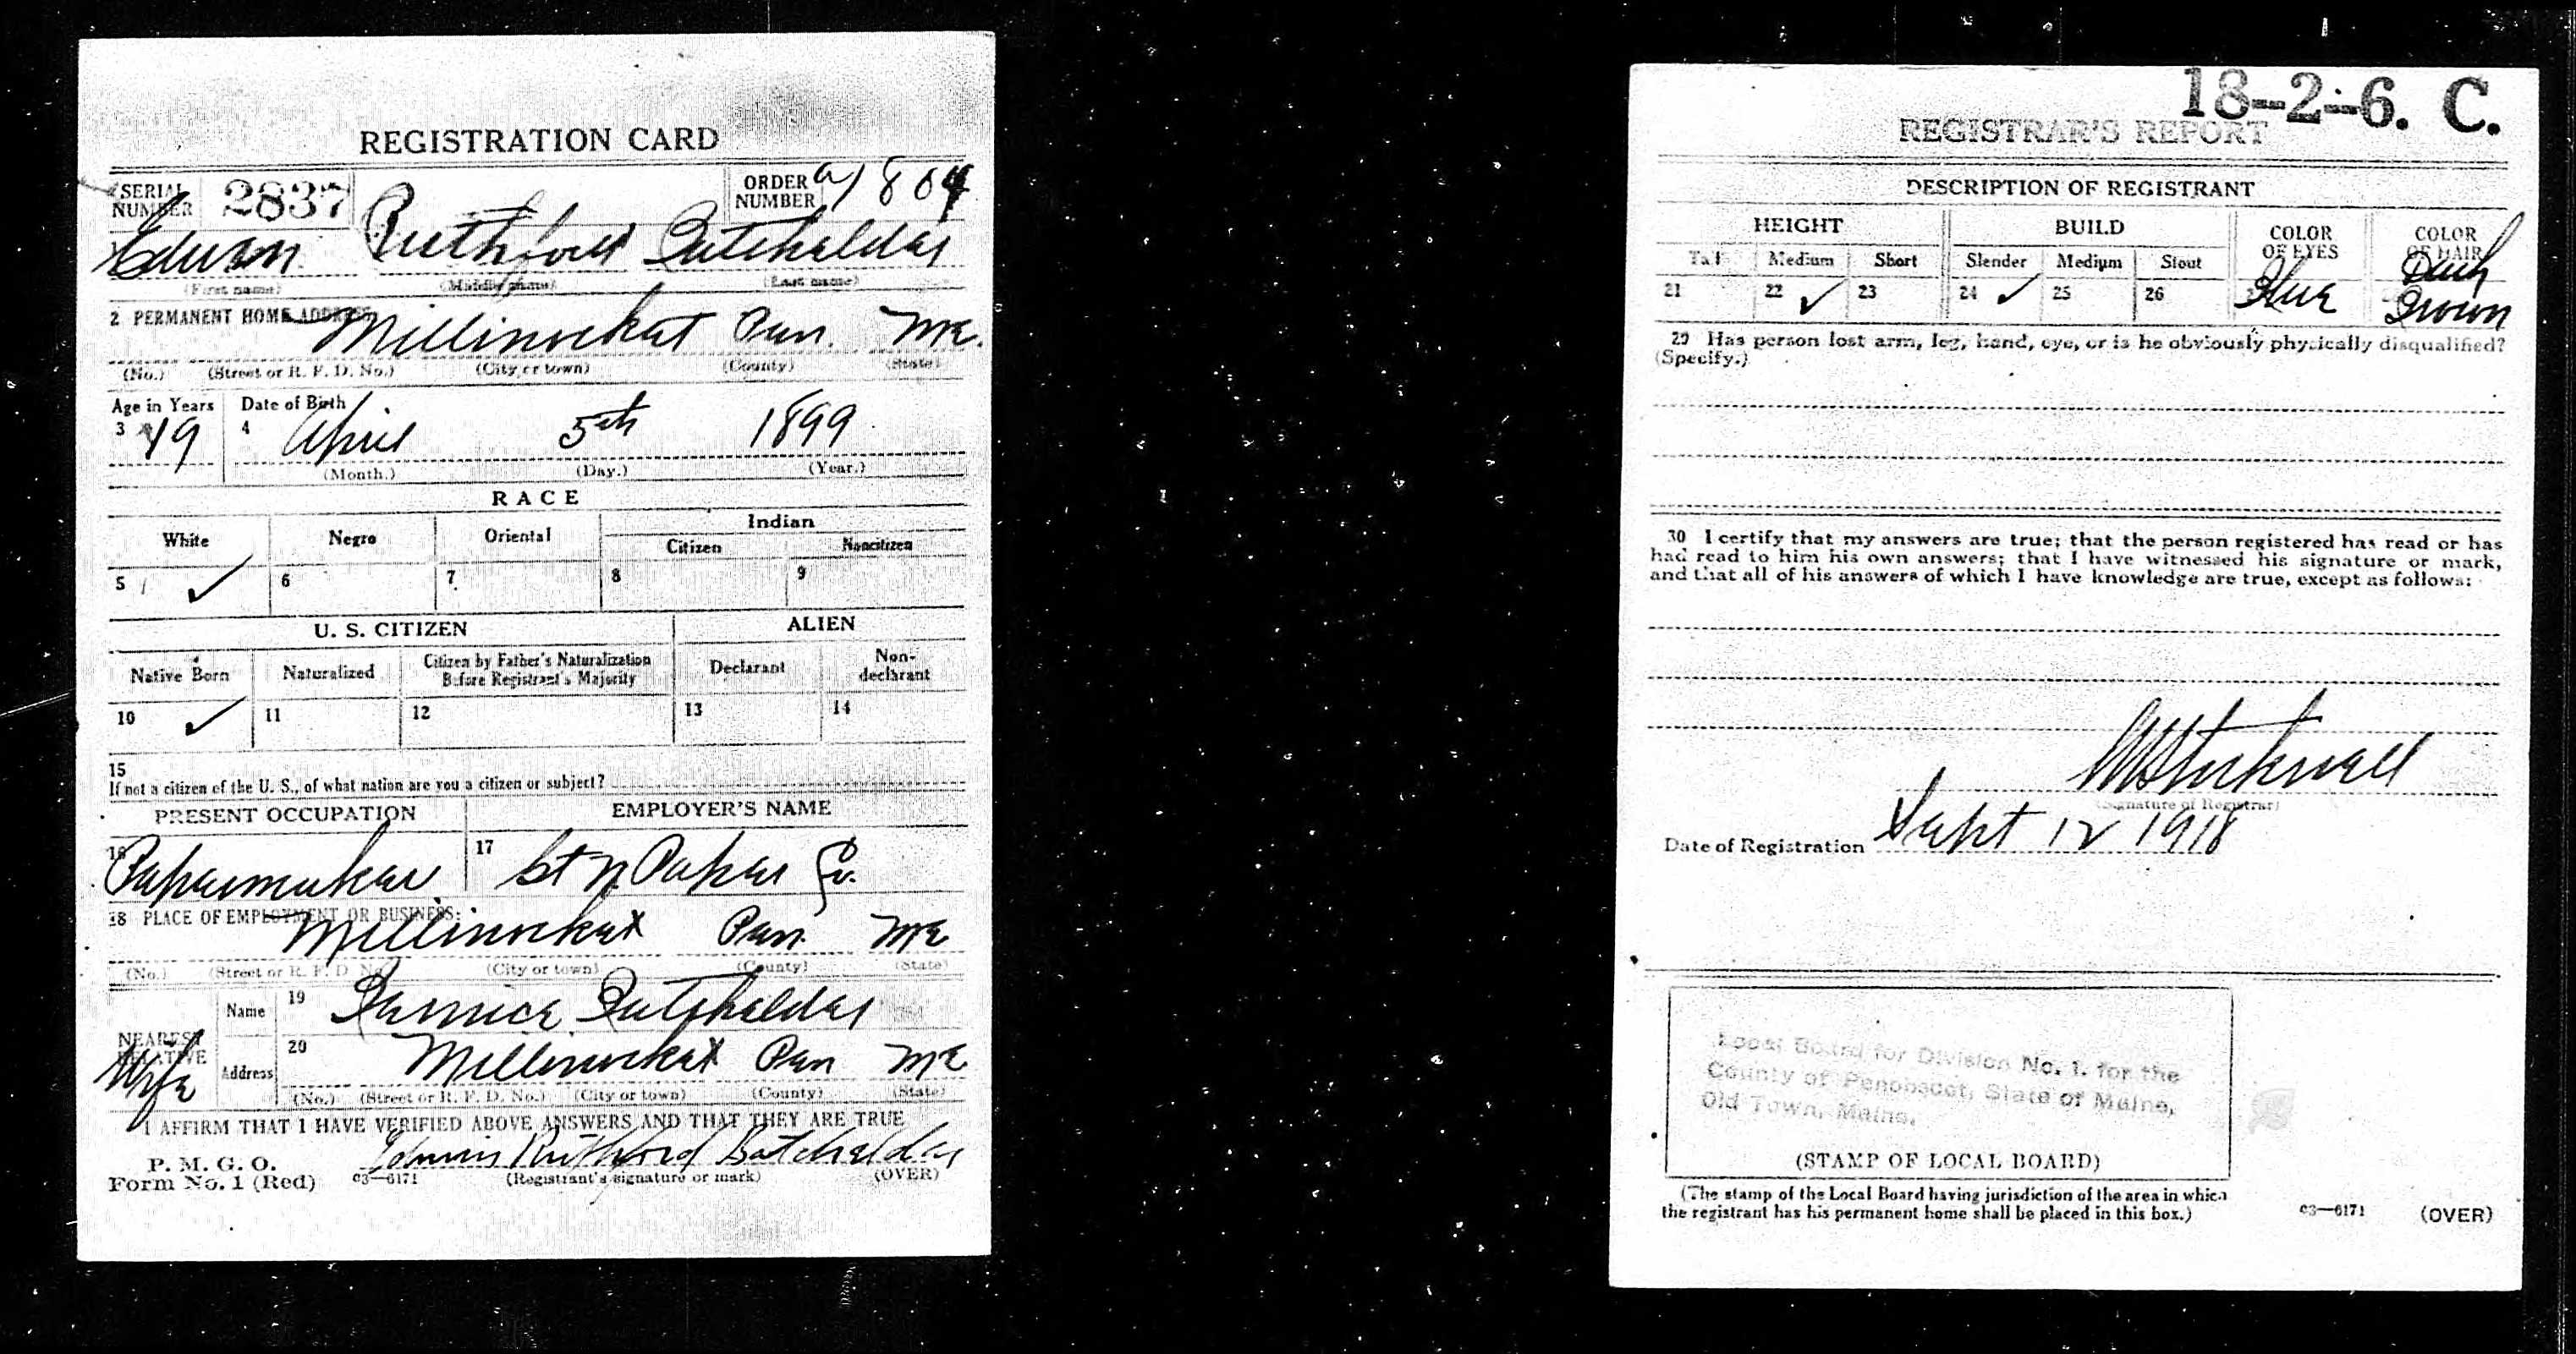 REGISTRATION CARD
SERIAL NUMBER 2837 ORDER NUMBER a1804
Edwin Ruthford Batchelder
(First name) (Middle name) (Last name)
2 PERMANENT HOME ADDRESS
Millinocket Pen. Me.
(No.) (Street or R. F. D. No.) (City or town) (County) (State)
Age in Years Date of Birth
3 19 4 April 5th 1899
(Month.) (Day.) (Year.)
RACE
White Negro Oriental Indian
Citizen Noncitizen
5 ✓ 6 7 8 9
U. S. CITIZEN ALIEN
Native Born Naturalized Citizen by Father's Naturalization Before Registrant's Majority Declarant Non-declarant
10 ✓ 11 12 13 14
15
If not a citizen of the U. S., of what nation are you a citizen or subject?
PRESENT OCCUPATION EMPLOYER'S NAME
16 Papermaker 17 Gt N. Paper Co.
18 PLACE OF EMPLOYMENT OR BUSINESS:
Millinocket Pen. Me
(No.) (Street or R. F. D. No.) (City or town) (County) (State)
NEAREST RELATIVE Name 19 Bernice Batchelder
Wife Address 20 Millinocket Pen Me
(No.) (Street or R. F. D. No.) (City or town) (County) (State)
I AFFIRM THAT I HAVE VERIFIED ABOVE ANSWERS AND THAT THEY ARE TRUE
P. M. G. O.
Form No. 1 (Red) c3—6171 Edwin Ruthford Batchelder
(Registrant's signature or mark) (OVER)
18-2-6. C.
REGISTRAR'S REPORT
DESCRIPTION OF REGISTRANT
HEIGHT BUILD COLOR OF EYES COLOR OF HAIR
Tall Medium Short Slender Medium Stout
21 22 ✓ 23 24 ✓ 25 26 Blue Dark Brown
29 Has person lost arm, leg, hand, eye, or is he obviously physically disqualified?
(Specify.)
30 I certify that my answers are true; that the person registered has read or has
had read to him his own answers; that I have witnessed his signature or mark,
and that all of his answers of which I have knowledge are true, except as follows:
(Signature of Registrar)
Date of Registration Sept 12 1918
Local Board for Division No. 1. for the
County of Penobscot, State of Maine,
Old Town, Maine.
(STAMP OF LOCAL BOARD)
(The stamp of the Local Board having jurisdiction of the area in which
the registrant has his permanent home shall be placed in this box.)
c3—6171 (OVER)